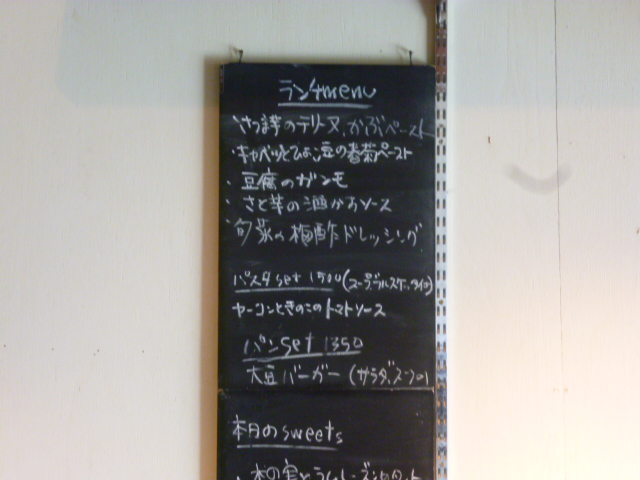 ランチmenu
・さつま芋のテリーヌ、かぶペースト
・キャベツとひよこ豆の春菊ペースト
・豆腐のガンモ
・さと芋の酒かすソース
・旬菜の梅酢ドレッシング
パスタset 1500(スープ、ブルスケッタ付)
ヤーコンときのこのトマトソース
パンset 1350
大豆バーガー (サラダ、スープ付)
本日のsweets
・木の実とラムレーズンの